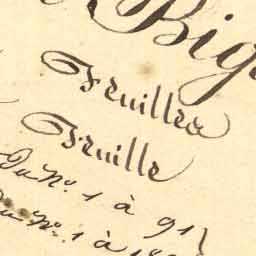 Big
Feuilles
Feuille
Du N.º 1 à 91
Du N.º 1 à